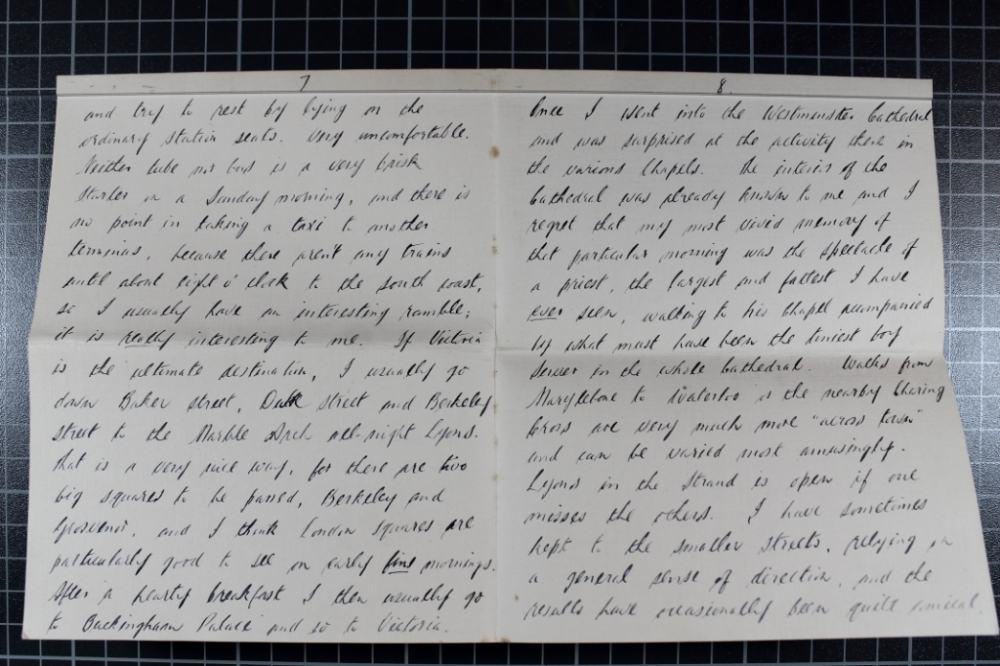 7
and try to rest by lying on the
ordinary station seats. Very uncomfortable.
Neither tube nor bus is a very brisk
starter on a Sunday morning, and there is
no point in taking a taxi to another
terminus, because there aren't any trains
until about eight o'clock to the south coast,
so I usually have an interesting ramble;
it is really interesting to me. If Victoria
is the ultimate destination, I usually go
down Baker street, Duke street and Berkeley
street to the Marble Arch all-night Lyons.
That is a very nice way, for there are two
big squares to be passed, Berkeley and
Grosvenor, and I think London squares are
particularly good to see on early fine mornings.
After a hearty breakfast I then usually go
to Buckingham Palace and so to Victoria.
8.
Once I went into the Westminster Cathedral
and was surprised at the activity there in
the various Chapels. The interior of the
Cathedral was already known to me and I
regret that my most vivid memory of
that particular morning was the spectacle of
a priest, the largest and fattest I have
ever seen, walking to his Chapel accompanied
by what must have been the tiniest boy
server in the whole Cathedral. Walks from
Marylebone to Waterloo or the nearby Charing
Cross are very much more "across town"
and can be varied most amusingly.
Lyons in the Strand is open if one
misses the others. I have sometimes
kept to the smaller streets, relying on
a general sense of direction, and the
results have occasionally been quite